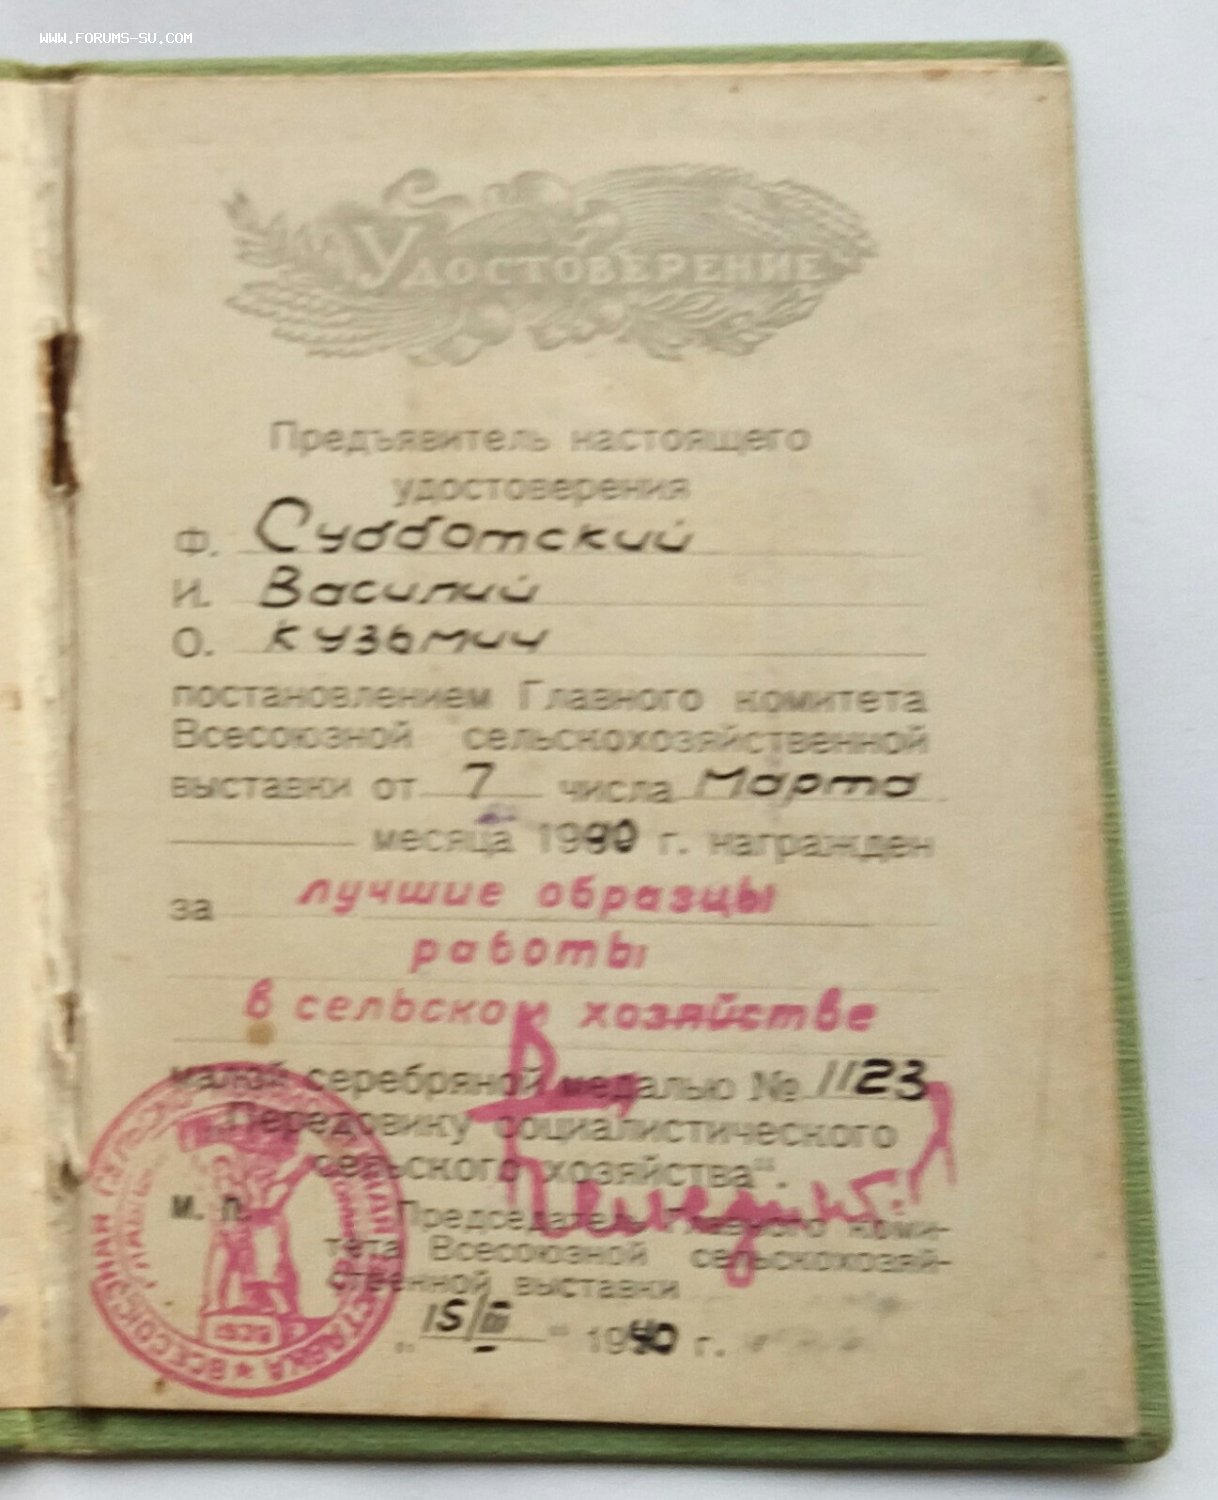 WWW.FORUMS-SU.COM
Удостоверение
Предъявитель настоящего
удостоверения
Ф. Субботский
И. Василий
О. Кузьмич
постановлением Главного комитета
Всесоюзной сельскохозяйственной
выставки от 7 числа Марта
месяца 1940 г. награжден
за лучшие образцы
работы
в сельском хозяйстве
малой серебряной медалью № 1123
„Передовику социалистического
сельского хозяйства“.
М. П.
Председатель Главного коми-
тета Всесоюзной сельскохозяй-
ственной выставки
„15/III“ 1940 г.
ВСЕСОЮЗНАЯ ВЫСТАВКА
1939